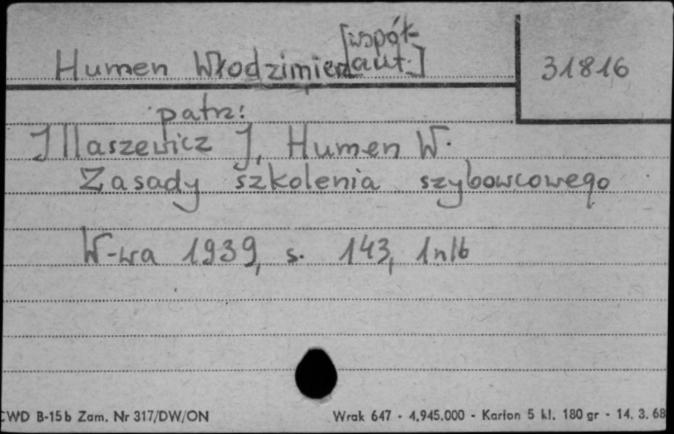 Humen Włodzimierz [współ-
aut.]
31816
patrz:
Illaszewicz J, Humen W.
Zasady szkolenia szybowcowego
W-wa 1939, s. 143, 1nlb
CWD B-15b Zam. Nr 317/DW/ON Wrak 647 - 4.945.000 - Karton 5 kl. 180 gr - 14. 3. 68